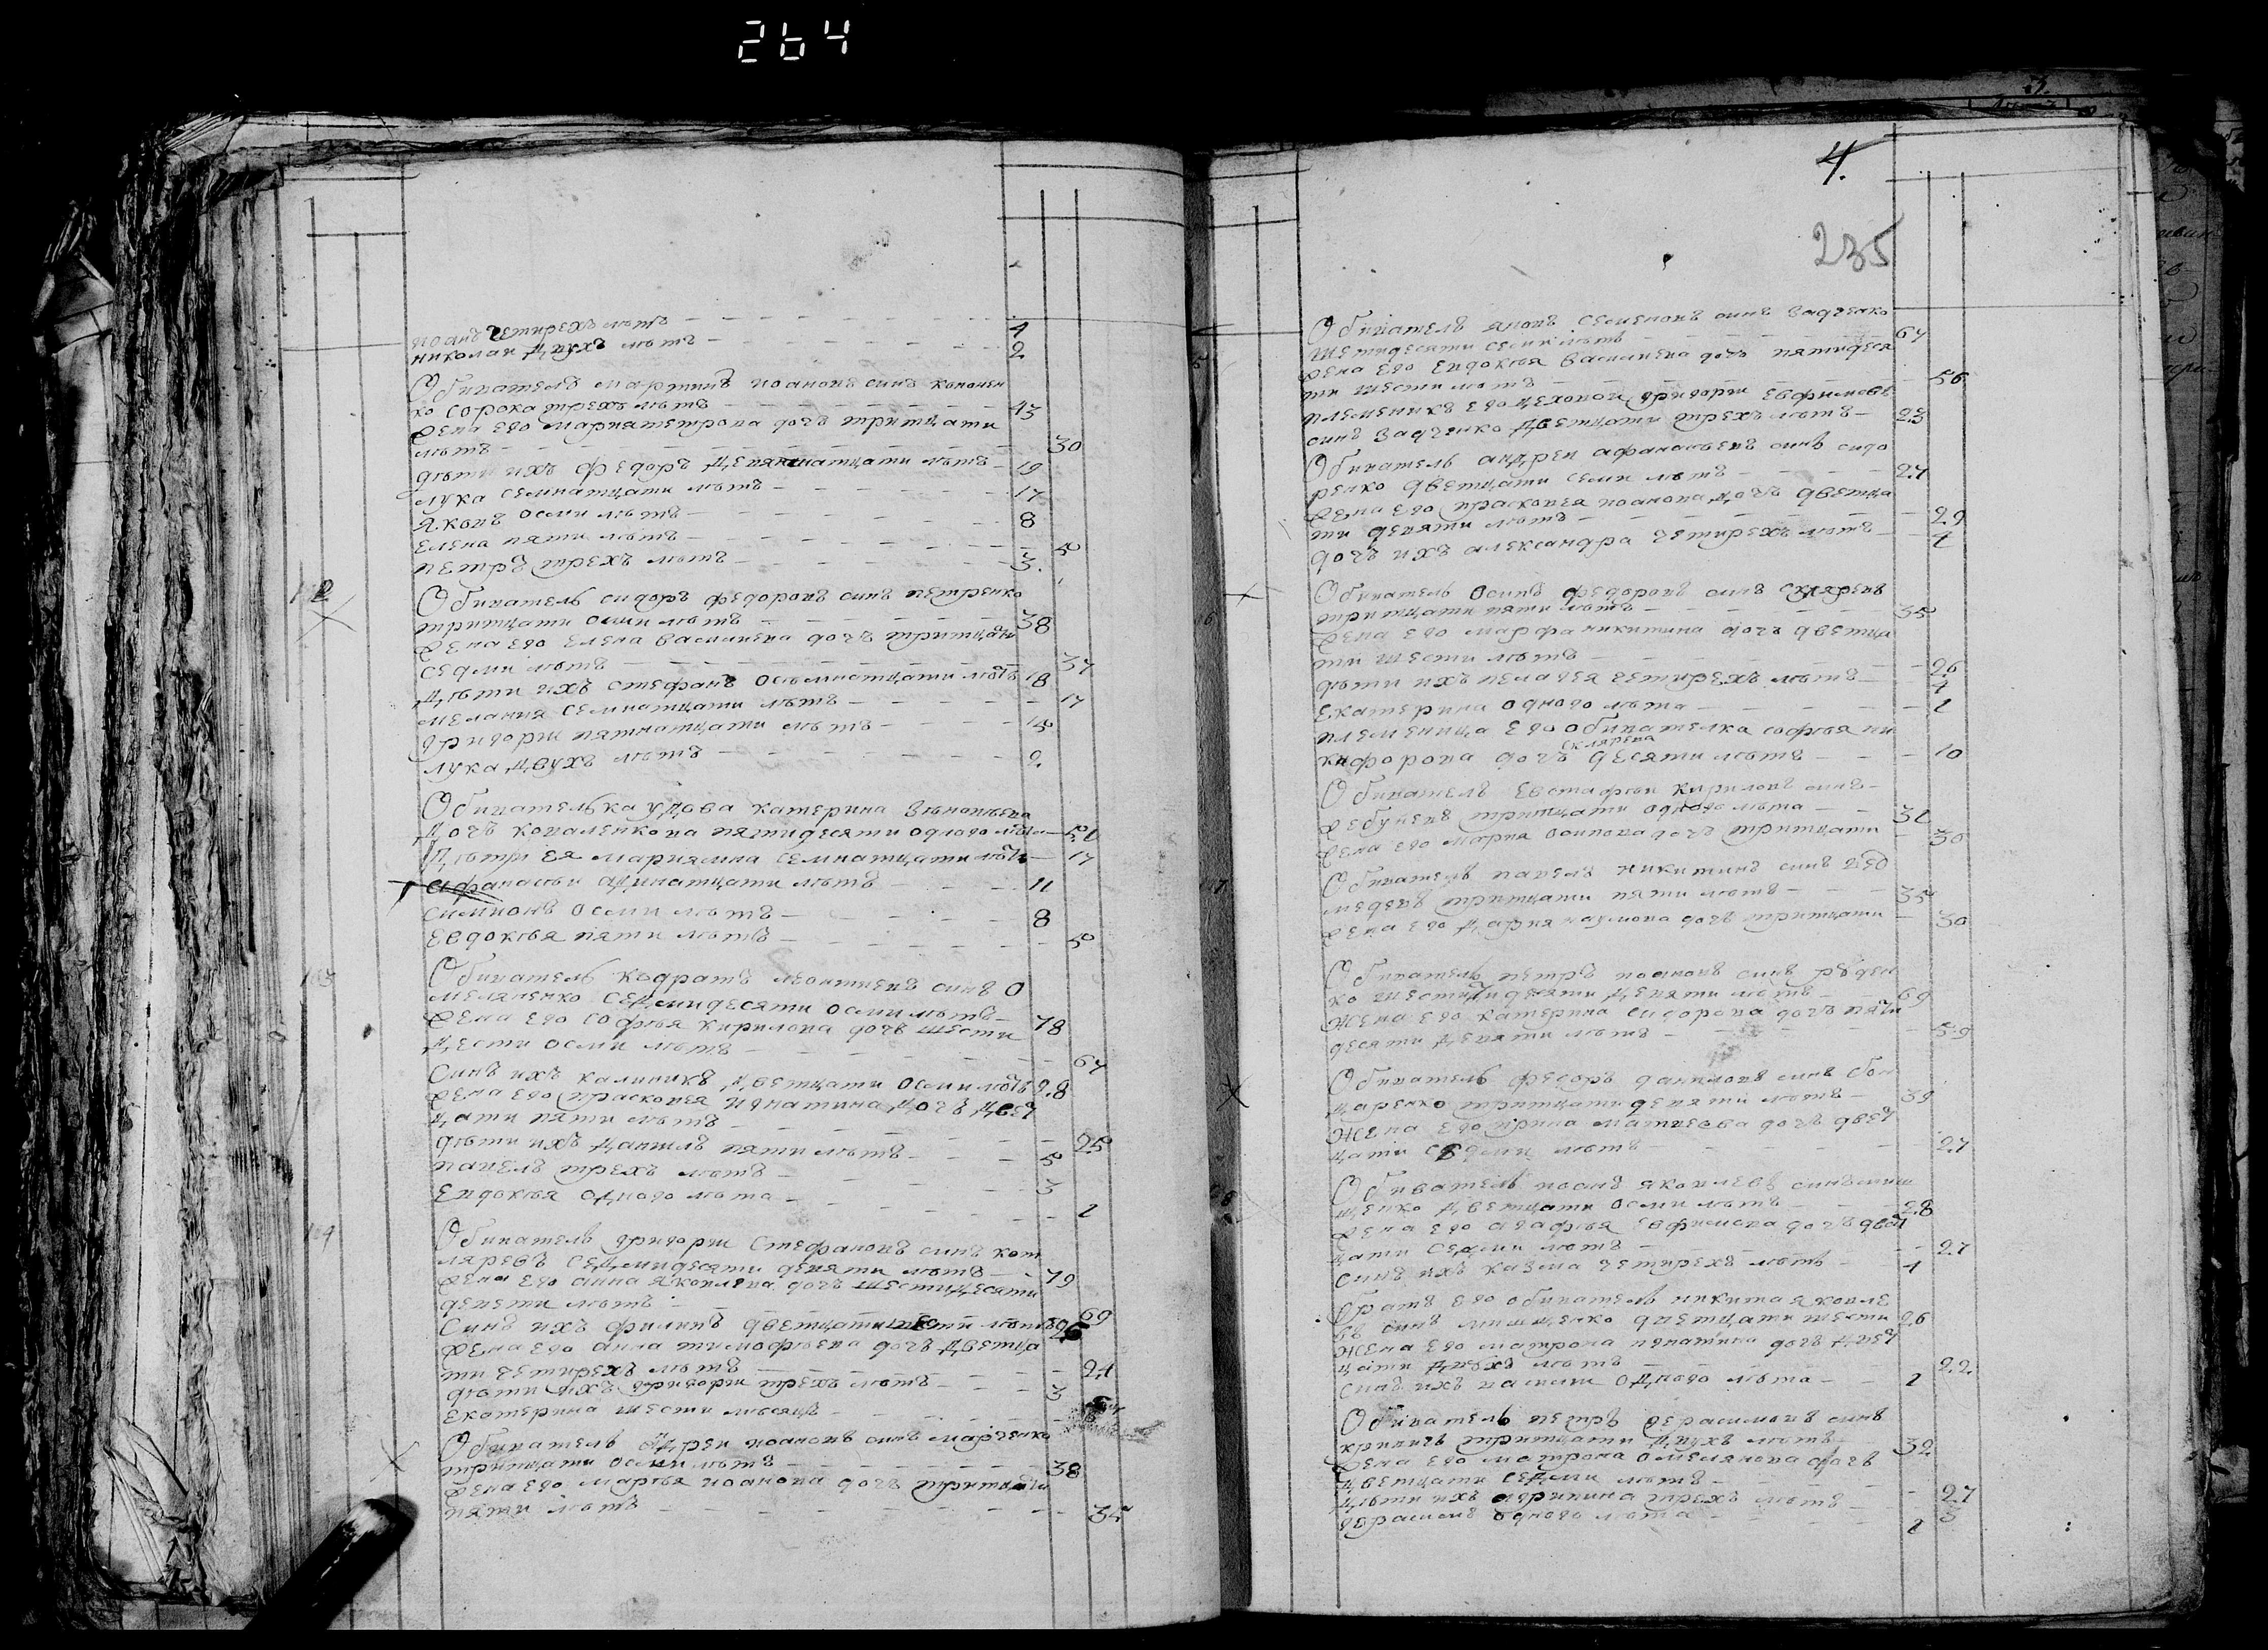 264
иоанъ четирехъ лѣтъ 4
николаи двухъ лѣтъ 2
Обиватель мартинъ иоановъ синъ кононен
ко сорока трехъ лѣтъ 43
жена его мариа петрова дочь тритцати
лѣтъ 30
дѣти ихъ федоръ девятнатцати лѣтъ 19
лука семнатцати лѣтъ 17
яковъ осми лѣтъ 8
елена пяти лѣтъ 5
петръ трехъ лѣтъ 3
Обиватель сидоръ федоровъ синъ петренко
тритцати осми лѣтъ 38
жена его елена василиева дочь тритцати
седми лѣтъ 37
дѣти ихъ стефанъ осьмнатцати лѣтъ 18
мелания семнатцати лѣтъ 17
григории пятнатцати лѣтъ 15
лука двухъ лѣтъ 2
Обивателька удова катерина
дочь коваленкова пятидесяти одного лѣта 51
дѣти ея мариямна семнатцати лѣтъ 17
афанасии одинатцати лѣтъ 11
симионъ осми лѣтъ 8
евдокѣя пяти лѣтъ 5
103
Обиватель кодратъ леонтиевъ синъ о
меляненко седмидесяти осми лѣтъ 78
жена его софѣя кирилова дочь шести
дести осми лѣтъ 67
синъ ихъ калиникъ дветцати осми лѣтъ 28
жена его прасковея игнатина дочь двет
цати пяти лѣтъ 25
дѣти ихъ данилъ пяти лѣтъ 5
павелъ трехъ лѣтъ 3
евдокѣя одного лѣта 1
104
Обиватель григории стефановъ синъ кот
ляревъ седмидесяти девяти лѣтъ 79
жена его анна яковлева дочь шестидесяти
девети лѣтъ 69
синъ ихъ филипъ дветцати шести лѣтъ 26
жена его анна тимофѣева дочь дветца
ти четирехъ лѣтъ 24
дѣти ихъ григории трехъ лѣтъ 3
екатерина шести мѣсяцъ
Обиватель андреи иоановъ синъ марченко
тритцати осми лѣтъ 38
жена его марѣя иоанова дочь тритцати
пяти лѣтъ 35
4.
235
Обиватель яковъ семеновъ синъ задченко
шетидесяти семи лѣтъ 67
жена его евдокѣя василиева дочь пятидеся
ти шести лѣтъ 56
племеникъ его цеховои григории евфимовъ
синъ задченко дветцати трехъ лѣтъ 23
Обиватель андреи афанасѣевъ синъ сидо
ренко дветцати семи лѣтъ 27
жена его прасковея иоанова дочь дветца
ти девяти лѣтъ 29
дочь ихъ александра четирехъ лѣтъ 4
Обиватель осипъ федоровъ синъ скляревъ
тритцати пяти лѣтъ 35
жена его марфа никитина дочь дветца
ти шести лѣтъ 26
дѣти ихъ пелагея четирехъ лѣтъ 4
екатерина одного лѣта 1
племеница его обивателка софѣя ни
склярева
кифорова дочь десяти лѣтъ 10
Обиватель евстафеи кириловъ синъ
ребуневъ тритцати одного лѣта 31
жена его мария осипова дочь тритцати 30
Обиватель павелъ никитинъ синъ
медевъ тритцати пяти лѣтъ 35
жена его дария наумова дочь тритцати 30
Обиватель петръ иоановъ синъ
ко шестидесяти девяти лѣтъ 69
жена его катерина сидорова дочь пяти
десяти девяти лѣтъ 59
Обиватель федоръ даниловъ синъ бон
даренко тритцати девяти лѣтъ 39
жена его ирина матвеева дочь двет
цати седми лѣтъ 27
Обиватель иоанъ яковлевъ синъ миш
ченко дветцати осми лѣтъ 28
жена его агафѣя евфимова дочь двет
цати седми лѣтъ 27
синъ ихъ казма четирехъ лѣтъ 4
братъ его обиватель никита яковле
въ синъ мишченко дветцати шести 26
жена его матрона игнатина дочь двет
цати двухъ лѣтъ 22
синъ ихъ василии одного лѣта 1
Обиватель петръ герасимовъ синъ
тритцати двухъ лѣтъ 32
жена его матрона омелянова дочь
дветцати седми лѣтъ 27
дѣти ихъ агрипина трехъ лѣтъ 3
герасимъ одного лѣта 1